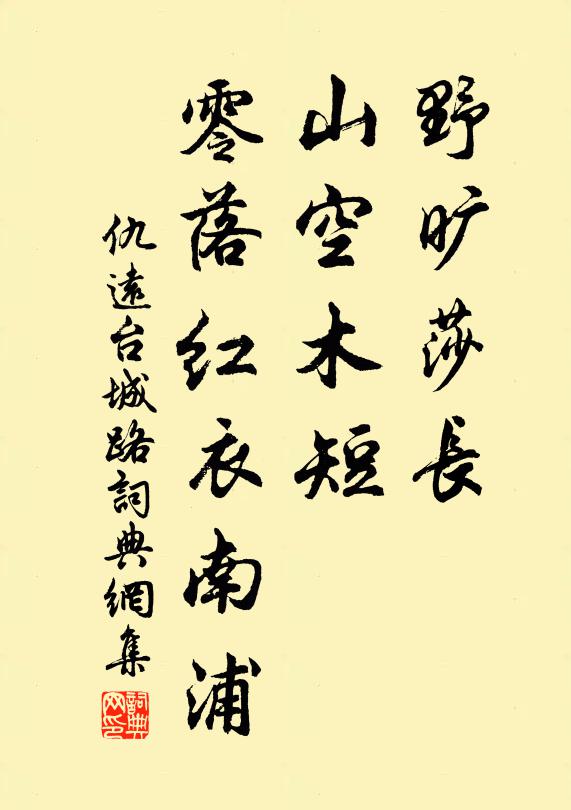 野旷莎長
山空木短
零落红衣南浦
仇遠台城路詞典網集
詞典网印